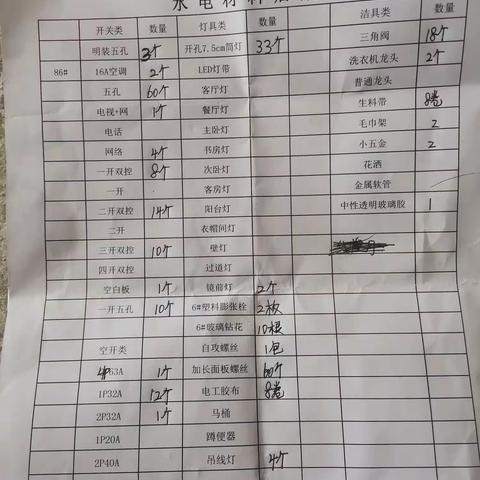 水电材料
开关类 数量 灯具类 数量 洁具类 数量
明装五孔 3个 开孔7.5cm筒灯 33个 三角阀 18个
86# 16A空调 2个 LED灯带 洗衣机龙头 2个
五孔 60个 客厅灯 普通龙头
电视+网 1个 餐厅灯 生料带 8卷
电话 主卧灯 毛巾架 2
网络 4个 书房灯 小五金 2
一开双控 8个 次卧灯 花洒
一开 客房灯 金属软管
二开双控 14个 阳台灯 中性透明玻璃胶 1
二开 衣帽间灯
三开双控 10个 壁灯
四开双控 过道灯
空白板 1个 镜前灯 2个
一开五孔 10个 6#塑料膨张栓 2板
6#玻璃钻花 10根
空开类 自攻螺丝 1包
4P63A 1个 加长面板螺丝 60个
1P32A 12个 电工胶布 8卷
2P32A 1个 马桶
1P20A 蹲便器
2P40A 吊线灯 4个